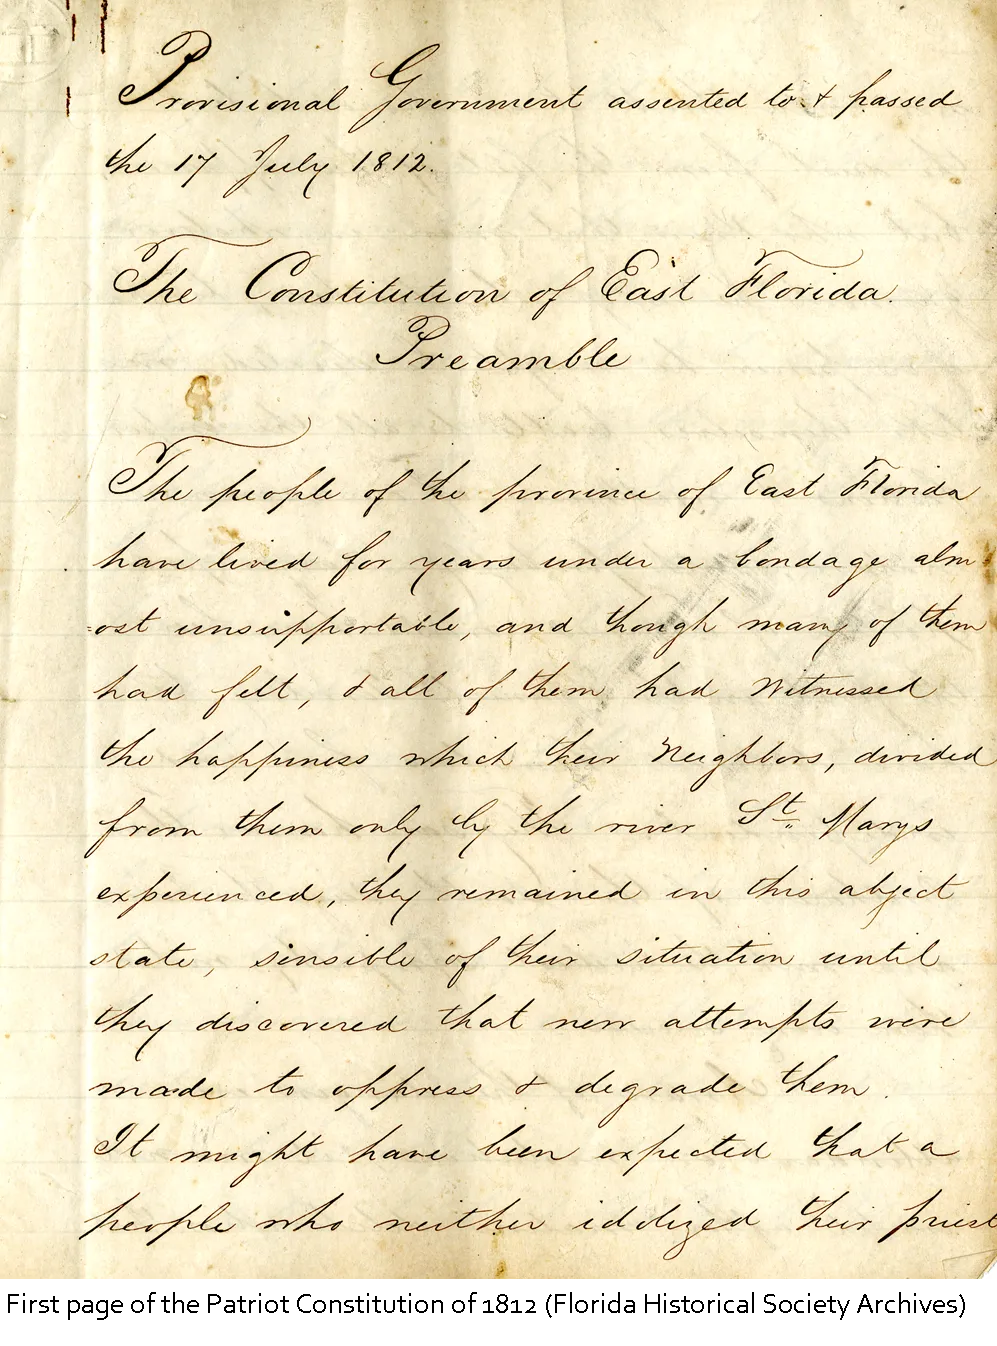 Provisional Government assented to & passed
the 17 July 1812.
The Constitution of East Florida.
Preamble
The people of the province of East Florida
have lived for years under a bondage alm-
=ost unsupportable, and though many of them
had felt, & all of them had witnessed
the happiness which their Neighbors, divided
from them only by the river St. Marys
experienced, they remained in this abject
state, sensible of their situation until
they discovered that new attempts were
made to oppress & degrade them.
It might have been expected that a
people who neither idolized their priest
First page of the Patriot Constitution of 1812 (Florida Historical Society Archives)